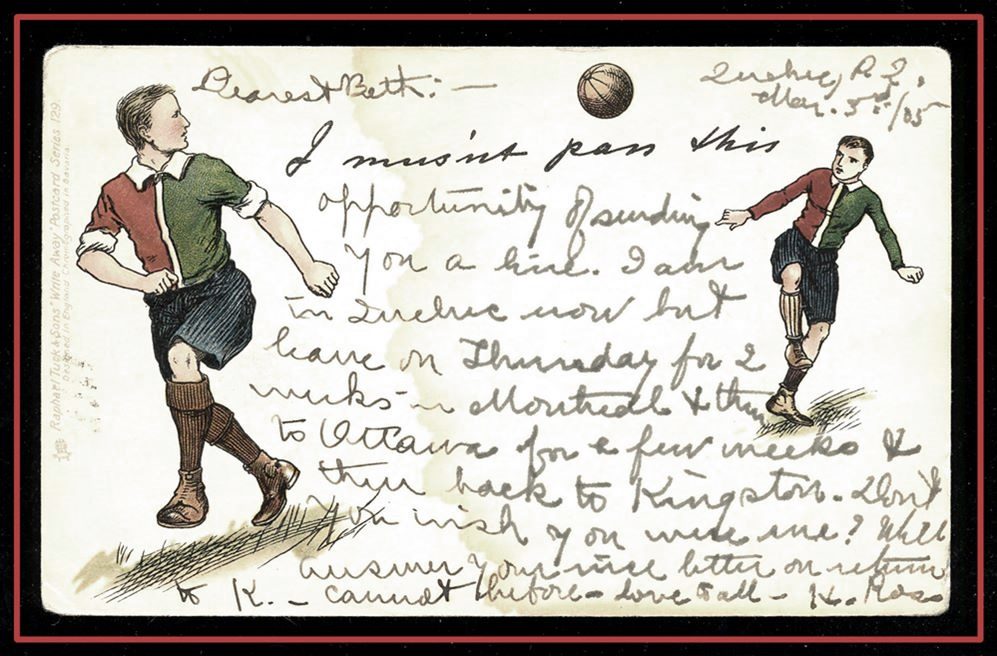 Dearest Beth:—
Quebec, P.Q.,
Mar. 5th/05
I musn't pass this
opportunity of sending
you a line. I am
in Quebec now but
leave on Thursday for 2
weeks in Montreal & then
to Ottawa for a few weeks &
then back to Kingston. Don't
you wish you were me? Will
answer your nice letter on return
to K. – cannot before – love to all – H. Ross
Raphael Tuck & Sons "Write Away" Postcard Series 129.
Designed in England Chromographed in Bavaria.